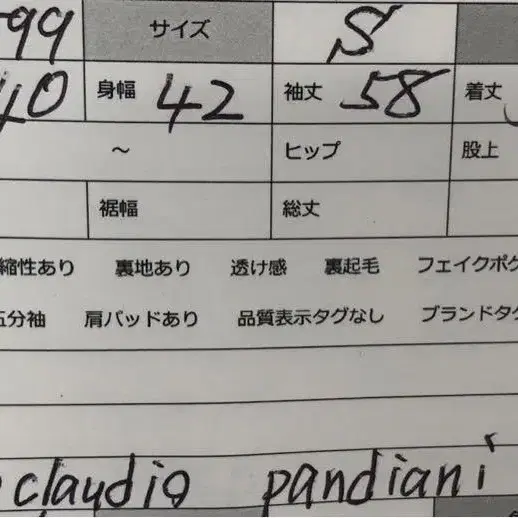 99 サイズ S
40 身幅 42 袖丈 58 着丈
～ ヒップ 股上
裾幅 総丈
縮性あり 裏地あり 透け感 裏起毛 フェイクポケ
五分袖 肩パッドあり 品質表示タグなし ブランドタグ
claudio pandiani